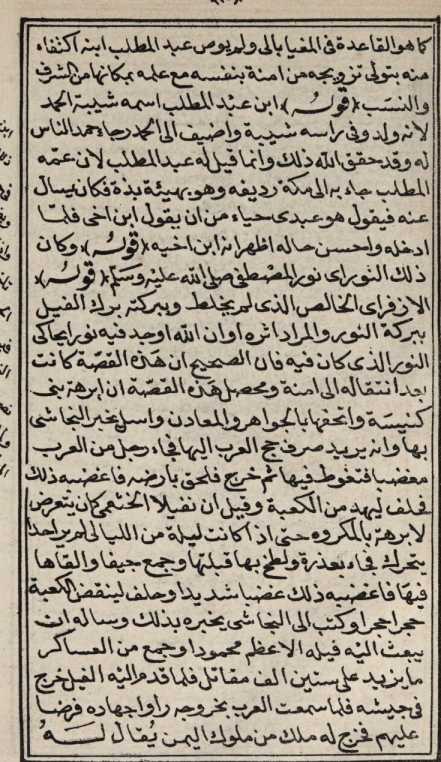 كما هو القاعدة فى المغيا بالى ولم يوص عبد المطلب ابنه اكتفاء
منه بتولى تزويجه من امنة بنفسه مع علمه بمكانها من الشرف
والنسب ﴿قوله﴾ ابن عبد المطلب اسمه شيبة الحمد
لانه ولد وفى راسه شيبة واضيف الى الحمد رجاء حمد الناس
له وقد حقق الله ذلك وانما قيل له عبد المطلب لان عمه
المطلب جاء به الى مكة رديفه وهو بهيئة بذة فكان يسال
عنه فيقول هو عبدى حياء من ان يقول ابن اخى فلما
ادخله واحسن حاله اظهر انه ابن اخيه ﴿قوله﴾ وكان
ذلك النور اى نور المصطفى صلى الله عليه وسلم ﴿قوله﴾
الازفر اى الخالص الذى لم يخلط وببركته برك الفيل
ببركة النور والمراد اثره او ان الله اوجد فيه نورا يحاكى
النور الذى كان فيه فان الصحيح ان هذه القصة كانت
بعد انتقاله الى امنة ومحصل هذه القصة ان ابرهة بنى
كنيسة واتحفها بالجواهر والمعادن وارسل يخبر النجاشى
بها وانه يريد صرف حج العرب اليها فجاء رجل من العرب
مغضبا فتغوط فيها ثم خرج فلحق بارضه فاغضبه ذلك
فحلف ليهدمن الكعبة وقيل ان نفيلا الخثعمى كان يتعرض
لابرهة بالمكروه حتى اذا كانت ليلة من الليالى لم ير احدا
يتحرك فجاء بعذرة ولطخ بها قبلتها وجمع جيفا والقاها
فيها فاغضبه ذلك غضبا شديدا وحلف لينقض الكعبة
حجرا حجرا وكتب الى النجاشى يخبره بذلك وساله ان
يبعث اليه فيله الاعظم محمودا وجمع من العساكر
ما يزيد على ستين الف مقاتل فلما قدم اليه الفيل خرج
فى جيشه فلما سمعت العرب بخروجه راوا جهاده فرضا
عليهم فخرج له ملك من ملوك اليمن يقال له